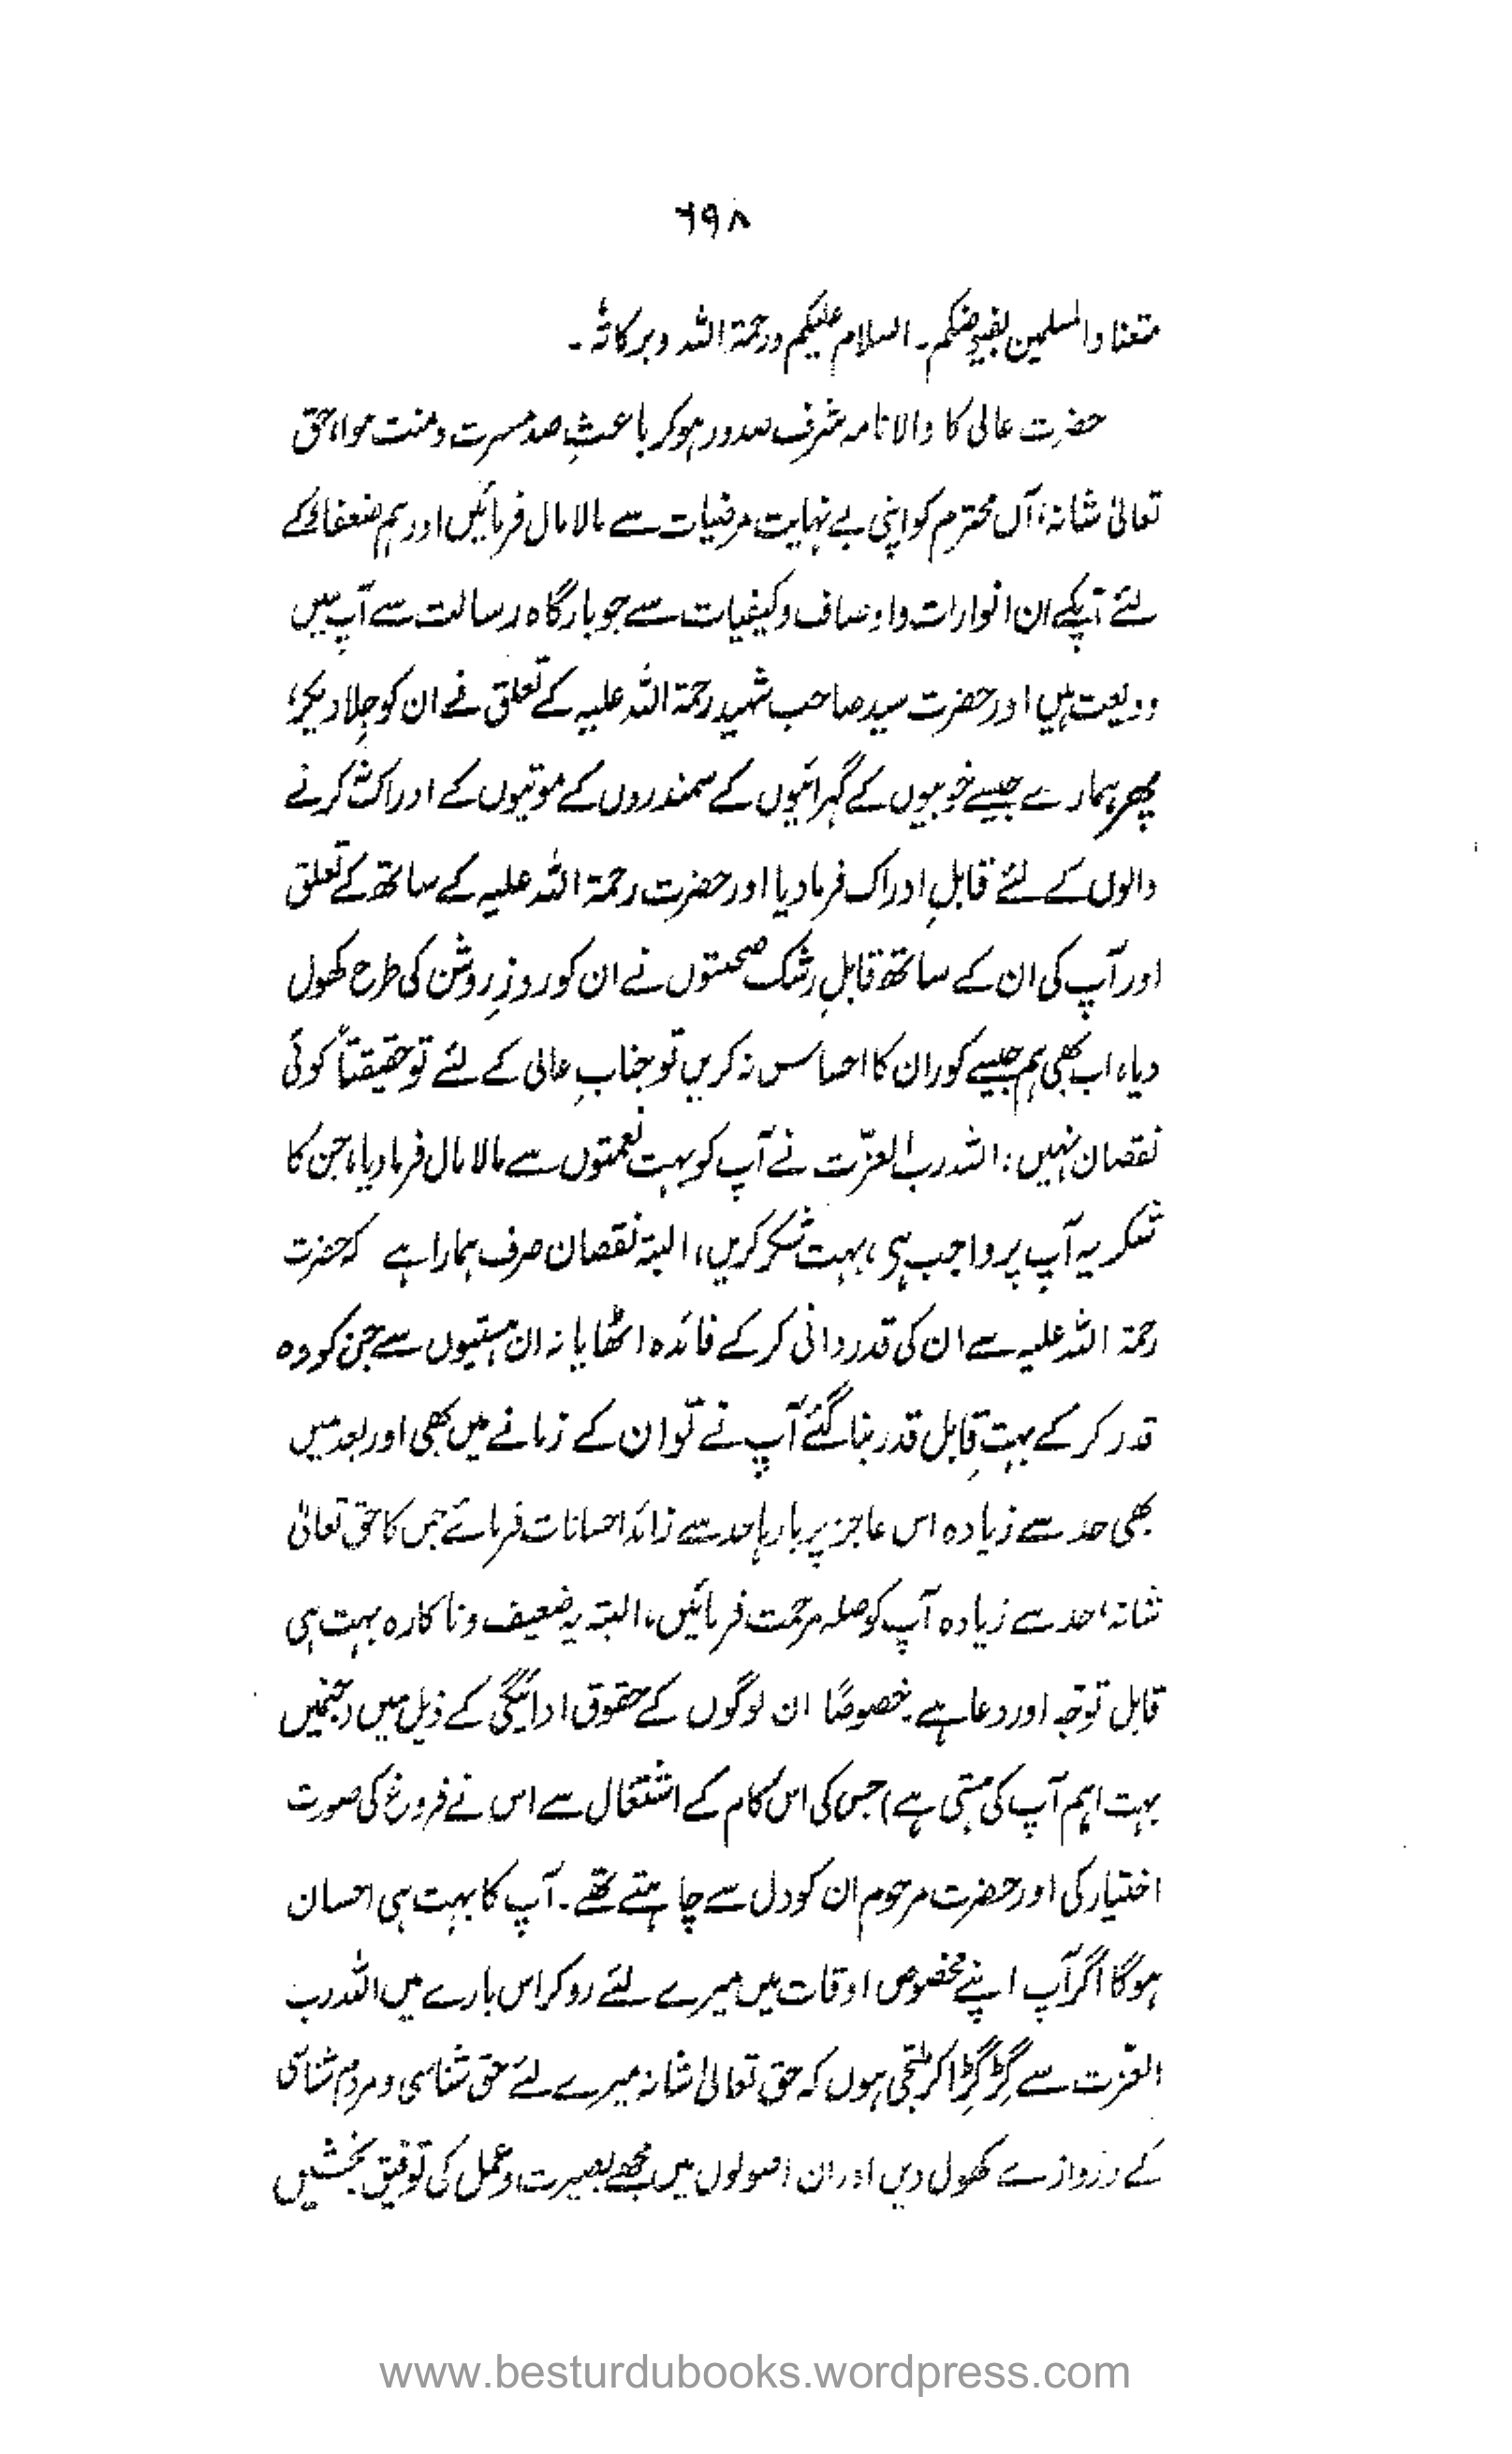 ۶۹۸
متعنا والمسلمین بفیوضکم۔ السلام علیکم ورحمۃ اللہ وبرکاتہٗ۔
حضرت عالی کا والا نامہ شرف صدور ہوکر باعثِ صد مسرت ومنت ہوا، حق
تعالیٰ شانہٗ، آں محترم کو اپنی بے نہایت مرضیات سے مالا مال فرمائیں اور ہم ضعفاء کے
لئے آپکے ان انوارات واوصاف وکیفیات سے جو بارگاہ رسالت سے آپ میں
ودیعت ہیں اور حضرت سید صاحب شہید رحمۃ اللہ علیہ کے تعلق نے ان کو جِلا دیکر،
پھر ہمارے جیسے خوبیوں کے گہرائیوں کے سمندروں کے موتیوں کے ادراک نہ کرنے
والوں کے لئے قابلِ ادراک فرما دیا اور حضرت رحمۃ اللہ علیہ کے ساتھ کے تعلق
اور آپ کی ان کے ساتھ قابلِ رشک صحبتوں نے ان کو روزِ روشن کی طرح کھول
دیا، اب بھی ہم جیسے کور ان کا احساس نہ کریں تو جنابِ عالی کے لئے تو حقیقتاً کوئی
نقصان نہیں، اللہ رب العزّت نے آپ کو بہت نعمتوں سے مالا مال فرما دیا، جن کا
شکریہ آپ پر واجب ہی، بہت شکر کریں، البتہ نقصان صرف ہمارا ہے کہ حضرت
رحمۃ اللہ علیہ سے ان کی قدردانی کرکے فائدہ اٹھایا نہ ان ہستیوں سے جن کو وہ
قدر کرکے بہت قابلِ قدر بنا گئے آپ نے تو ان کے زمانے میں بھی اور بعد میں
بھی حد سے زیادہ اس عاجز پر بارہا حد سے زائد احسانات فرمائے جس کا حق تعالیٰ
شانہٗ حد سے زیادہ آپ کو صلہ مرحمت فرمائیں، البتہ یہ ضعیف وناکارہ بہت ہی
قابل توجّہ اور دعا ہے خصوصًا ان لوگوں کے حقوق ادائیگی کے ذیل میں (جنمیں
بہت اہم آپ کی ہستی ہے) جس کی اس کام کے اشتغال سے اس نے فروغ کی صورت
اختیار کی اور حضرت مرحوم ان کو دل سے چاہتے تھے۔ آپ کا بہت ہی احسان
ہوگا اگر آپ اپنے مخصوص اوقات میں میرے لئے رو کر اس بارے میں اللہ رب
العزّت سے گِڑگِڑا کر ملتجی ہوں کہ حق تعالیٰ شانہ میرے لئے حق شناسی و مردم شناسی
کے دروازے کھول دیں اور ان اصولوں میں مجھے بصیرت وعمل کی توفیق بخشیں
www.besturdubooks.wordpress.com